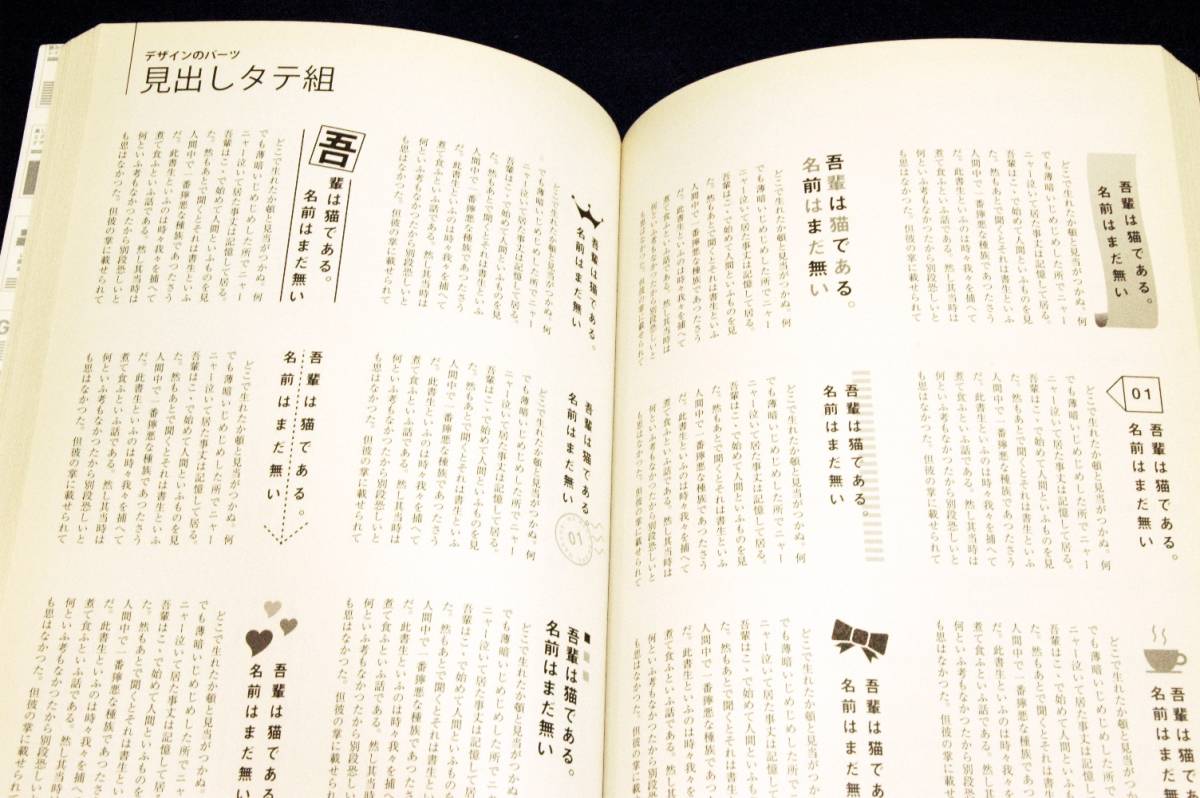 デザインのパーツ
見出しタテ組
吾輩は猫である。
名前はまだ無い
どこで生れたか頓と見当がつかぬ。何
でも薄暗いじめじめした所でニャー
ニャー泣いて居た事丈は記憶して居る。
吾輩はこ・で始めて人間といふものを見
た。然もあとで聞くとそれは書生といふ
人間中で一番獰悪な種族であつたさう
だ。此書生といふのは時々我々を捕へて
煮て食ふといふ話である。然し其当時は
何といふ考もなかつたから別段恐しいと
も思はなかつた。但彼の掌に載せられて
吾輩は猫である。
名前はまだ無い
どこで生れたか頓と見当がつかぬ。何
でも薄暗いじめじめした所でニャー
ニャー泣いて居た事丈は記憶して居る。
吾輩はこ・で始めて人間といふものを見
た。然もあとで聞くとそれは書生といふ
人間中で一番獰悪な種族であつたさう
だ。此書生といふのは時々我々を捕へて
煮て食ふといふ話である。然し其当時は
何といふ考もなかつたから別段恐しいと
も思はなかつた。但彼の掌に載せられて
吾輩は猫である
名前はまだ無い
01
どこで生れたか頓と見当がつかぬ。何
でも薄暗いじめじめした所でニャー
ニャー泣いて居た事丈は記憶して居る。
吾輩はこ・で始めて人間といふものを見
た。然もあとで聞くとそれは書生といふ
人間中で一番獰悪な種族であつたさう
だ。此書生といふのは時々我々を捕へて
煮て食ふといふ話である。然し其当時は
何といふ考もなかつたから別段恐しいと
も思はなかつた。但彼の掌に載せられて
吾輩は猫である。
名前はまだ無い
どこで生れたか頓と見当がつかぬ。何
でも薄暗いじめじめした所でニャー
ニャー泣いて居た事丈は記憶して居る。
吾輩はこ・で始めて人間といふものを見
た。然もあとで聞くとそれは書生といふ
人間中で一番獰悪な種族であつたさう
だ。此書生といふのは時々我々を捕へて
煮て食ふといふ話である。然し其当時は
何といふ考もなかつたから別段恐しいと
も思はなかつた。但彼の掌に載せられて
吾輩は猫である。
名前はまだ無い
どこで生れたか頓と見当がつかぬ。何
でも薄暗いじめじめした所でニャー
ニャー泣いて居た事丈は記憶して居る。
吾輩はこ・で始めて人間といふものを見
た。然もあとで聞くとそれは書生といふ
人間中で一番獰悪な種族であつたさう
だ。此書生といふのは時々我々を捕へて
煮て食ふといふ話である。然し其当時は
何といふ考もなかつたから別段恐しいと
も思はなかつた。但彼の掌に載せられて
吾輩は猫である
名前はまだ無い
どこで生れたか頓と見当がつかぬ。
でも薄暗いじめじめした所でニャー
ニャー泣いて居た事丈は記憶して居
吾輩はこ・で始めて人間といふもの
た。然もあとで聞くとそれは書生とい
人間中で一番獰悪な種族であつた
だ。此書生といふのは時々我々を捕へ
煮て食ふといふ話である。然し其当時
何といふ考もなかつたから別段恐しい
も思はなかつた。但彼の掌に載せられ
吾輩は猫である。
名前はまだ無い
どこで生れたか頓と見当がつかぬ。何
でも薄暗いじめじめした所でニャー
ニャー泣いて居た事丈は記憶して居る。
吾輩はこ・で始めて人間といふものを見
た。然もあとで聞くとそれは書生といふ
人間中で一番獰悪な種族であつたさう
だ。此書生といふのは時々我々を捕へて
煮て食ふといふ話である。然し其当時は
何といふ考もなかつたから別段恐しいと
も思はなかつた。但彼の掌に載せられて
吾輩は猫である。
名前はまだ無い
どこで生れたか頓と見当がつかぬ。何
でも薄暗いじめじめした所でニャー
ニャー泣いて居た事丈は記憶して居る。
吾輩はこ・で始めて人間といふものを見
た。然もあとで聞くとそれは書生といふ
人間中で一番獰悪な種族であつたさう
だ。此書生といふのは時々我々を捕へて
煮て食ふといふ話である。然し其当時は
何といふ考もなかつたから別段恐しいと
も思はなかつた。但彼の掌に載せられて
01
吾輩は猫である。
名前はまだ無い
どこで生れたか頓と見当がつかぬ。何
でも薄暗いじめじめした所でニャー
ニャー泣いて居た事丈は記憶して居る。
吾輩はこ・で始めて人間といふものを見
た。然もあとで聞くとそれは書生といふ
人間中で一番獰悪な種族であつたさう
だ。此書生といふのは時々我々を捕へて
煮て食ふといふ話である。然し其当時は
何といふ考もなかつたから別段恐しいと
も思はなかつた。但彼の掌に載せられて
吾輩は猫である
名前はまだ無い
どこで生れたか頓と見当がつかぬ。何
でも薄暗いじめじめした所でニャー
ニャー泣いて居た事丈は記憶して居る。
吾輩はこ・で始めて人間といふものを見
た。然もあとで聞くとそれは書生といふ
人間中で一番獰悪な種族であつたさう
だ。此書生といふのは時々我々を捕へて
煮て食ふといふ話である。然し其当時は
何といふ考もなかつたから別段恐しいと
も思はなかつた。但彼の掌に載せられて
吾輩は猫
名前はまだ
どこで生れたか頓と見当がつか
でも薄暗いじめじめした所で
ニャー泣いて居た事丈は記憶し
吾輩はこ・で始めて人間といふ
た。然もあとで聞くとそれは書生
人間中で一番獰悪な種族であ
だ。此書生といふのは時々我々を
煮て食ふといふ話である。然し其
何といふ考もなかつたから別段
も思はなかつた。但彼の掌に載せ
吾輩は猫である
名前はまだ無い
どこで生れたか頓と見当がつか
でも薄暗いじめじめした所で
ニャー泣いて居た事丈は記憶し
吾輩はこ・で始めて人間といふ
た。然もあとで聞くとそれは書生
人間中で一番獰悪な種族であ
だ。此書生といふのは時々我々を
煮て食ふといふ話である。然し其
何といふ考もなかつたから別段
も思はなかつた。但彼の掌に載せ